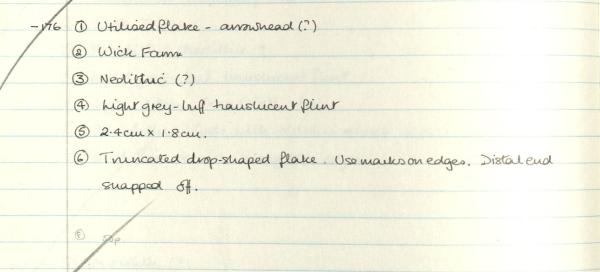 -176 ① Utilised flake - arrowhead (?)
② Wick Farm
③ Neolithic (?)
④ Light grey-buff translucent flint
⑤ 2.4cm x 1.8cm.
⑥ Truncated drop-shaped flake. Use marks on edges. Distal end
snapped off.